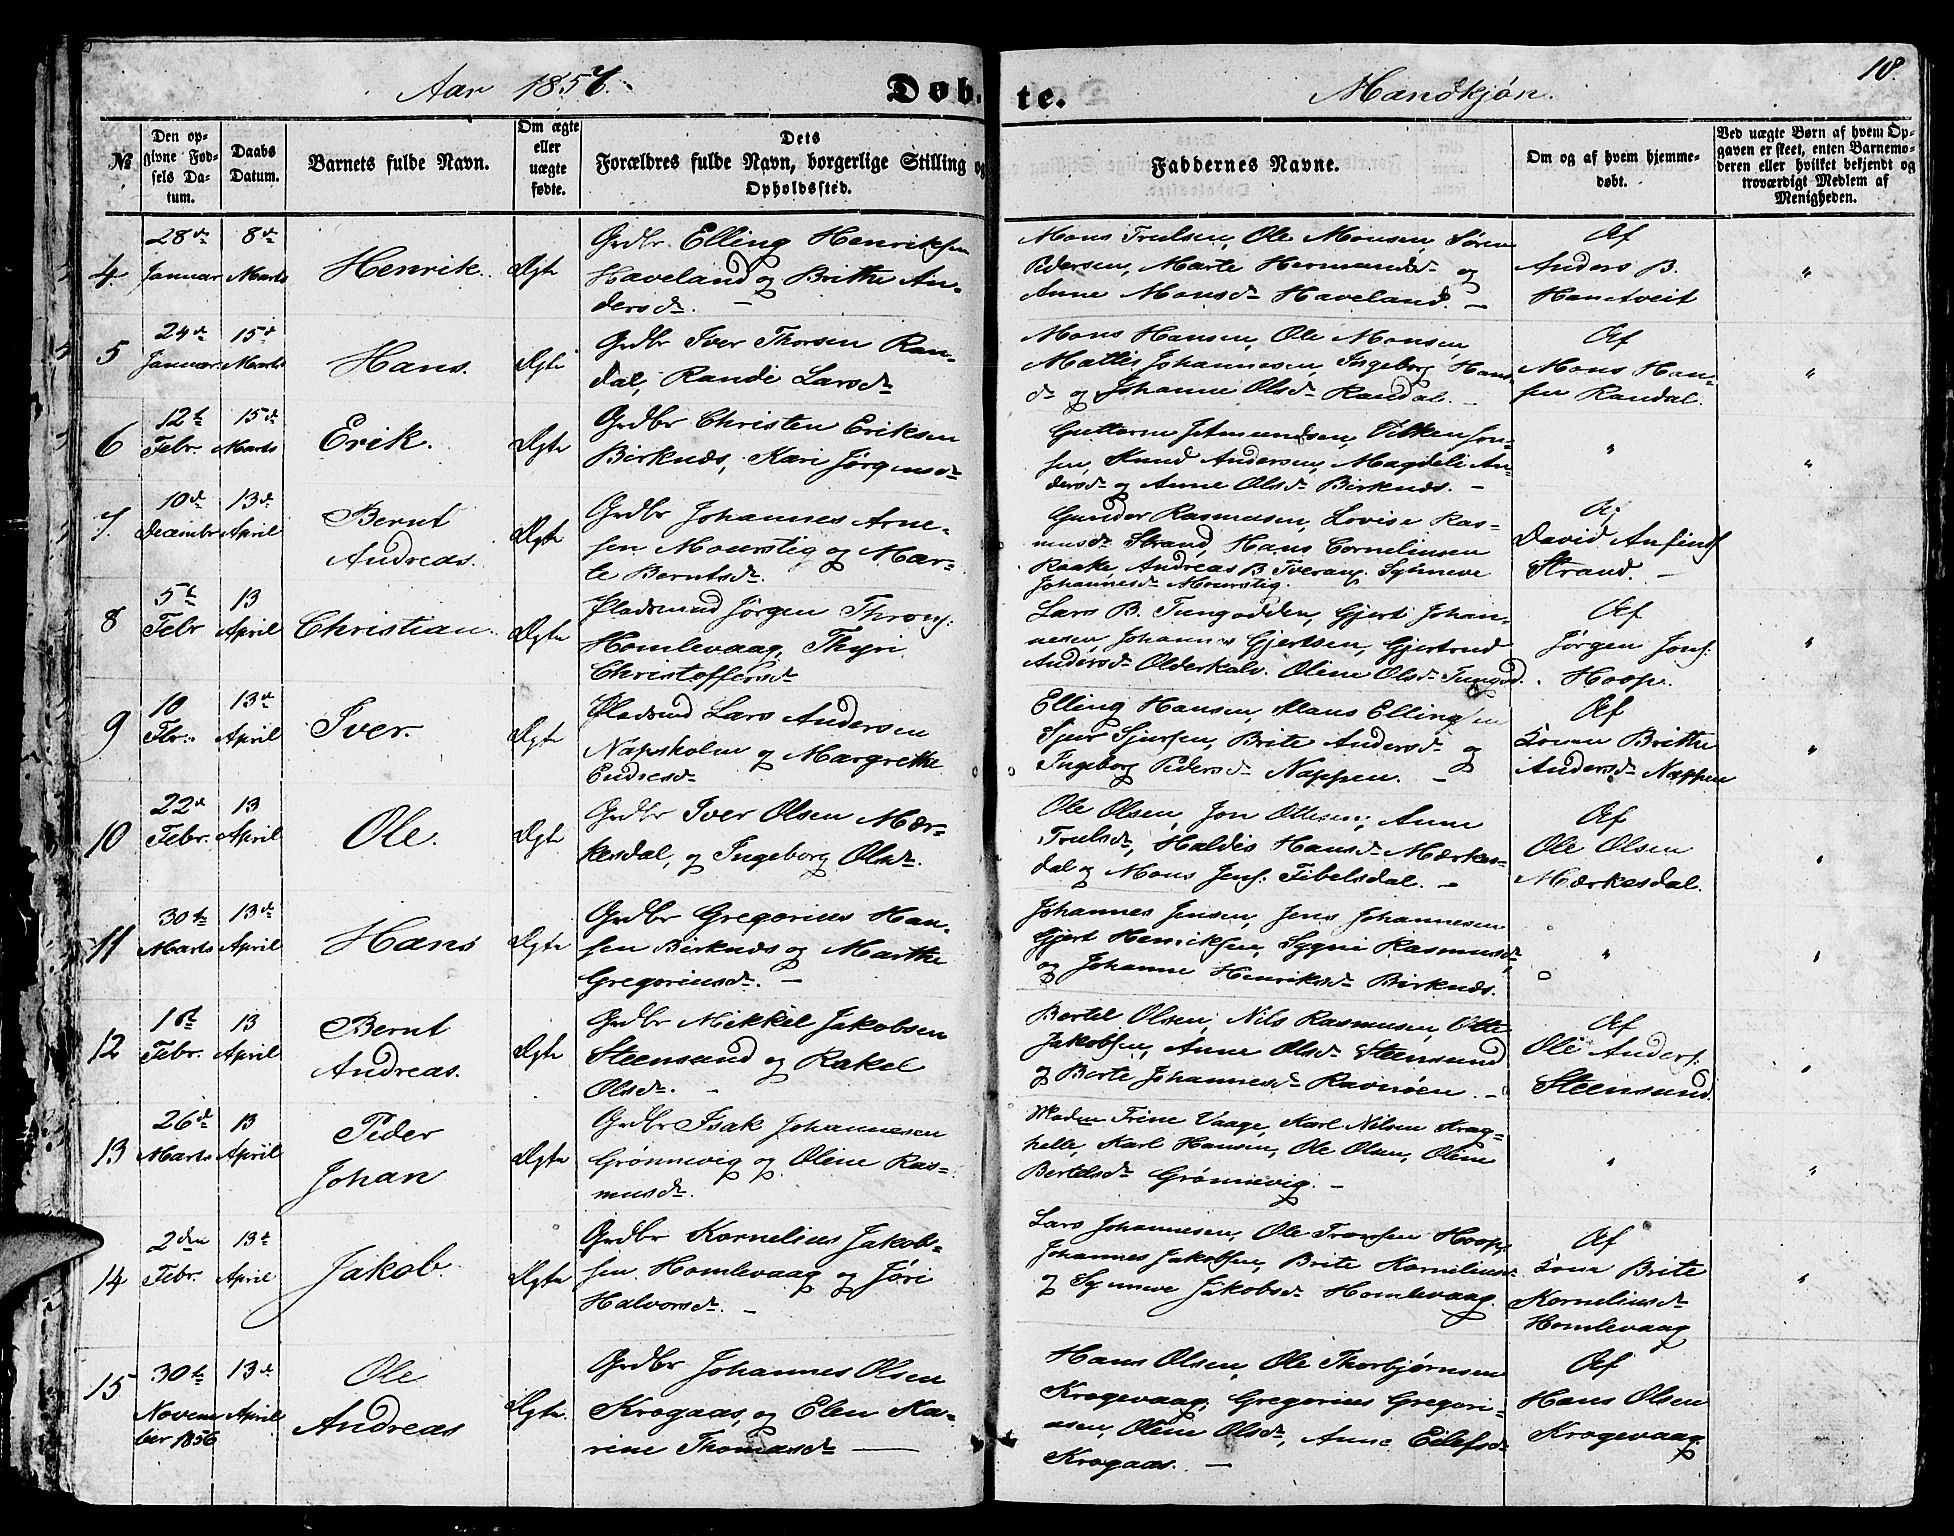 Aar 1857. Døbte. Mandkjøn. 18.
№
Den opgivne Fødsels Datum.
Daabs Datum.
Barnets fulde Navn.
Om ægte eller uægte fødte.
Dets Forældres fulde Navn, borgerlige Stilling og Opholdssted.
Faddernes Navne.
Om og af hvem hjemmedøbt.
Ved uægte Børn af hvem Opgaven er skeet, enten Barnemoderen eller hvilket bekjendt og troværdigt Medlem af Menigheden.
4
28de Januar
8de Marts
Henrik.
Ægte
Grdbr Elling Henriksen
Haveland og Brithe An-
dersdr. —
Mons Trulsen, Ole Monsen, Søren
Pedersen, Marte Hermundsdr og
Anne Monsdr Haveland. —
Af
Anders B.
Hantveit
"
5
24de Januar
15de Marts
Hans.
Ægte
Grdbr Iver Thorsen Ran-
dal, Rande Larsdr
Mons Hansen, Ole Monsen
Mattis Johannesen, Ingeborg Hans
dr og Johanne Olsdr Randal. —
Af
Mons Han-
sen Randal.
"
6
12te Febr.
15de Marts
Erik.
Ægte
Grdbr Christen Eriksen
Birknes, Kari Jørgensdr
Guttorm Amundsen, Vilken Jon-
sen, Knud Andersen, Magdeli An-
dersdr og Anne Olsdr Birknes. —
"
"
7.
10de Decembr
13de April
Bernt
Andreas.
Ægte
Grdbr Johannes Arne-
sen Mourstig og Mar-
te Berntsdr.
Gunder Rasmusen, Lovise Ras-
musdr Strand, Hans Corneliusen
Raake Andreas B. Tverang Synneve
Johannesdr Mourstig.
Af
David Anfinds
Strand. —
8
5te Febr
13 April
Christian.
Ægte
Pladsmand Jørgen Throns.
Homlevaag, Thyri
Christoffersdr
Lars B. Tungodden, Gjert Johan-
nesen, Johannes Gjertsen, Gjertrud
Andersdr Olderkalv. Oline Olsdr Tungod.
Af
Jørgen Jons.
Hoop.
"
9
10 Fbr.
13de April
Iver.
Ægte
Pladsmd Lars Andersen
Napsholm og Margrethe
Endresdr
Elling Hansen, Klaus Ellingsen
Sjur Sjursen, Brite Andersdr og
Ingeborg Pedersdr Nappen. —
Af
Konen Brithe
Andersdr Nappen
"
10
22de Febr.
13 April
Ole.
Ægte
Grdbr Iver Olsen Mær-
kesdal, og Ingeborg Olsdr.
Ole Olsen, Jon Ottesen, Anne
Trulsdr, Haldis Hansdr Mærkes-
dal og Mons Jens. Tibelsdal. —
Af
Ole Olsen
Mærkesdal.
"
11
30te Marts
13de April
Hans
Ægte
Grdbr Gregorius Han-
sen Birknes og Marthe
Gregoriusdr. —
Johannes Jensen, Jens Johannesen
Gjert Henriksen, Sygni Rasmusdr,
og Johanne Henriksdr Birknes.
"
"
12
16te Febr.
13 April
Bernt
Andreas.
Ægte
Grdbr Mikkel Jakobsen
Steensund og Rakel
Olsdr. —
Bertel Olsen, Nils Rasmusen, Otte
Jakobsen, Anne Olsdr Steensund
og Berte Johannesdr Ravnøen. —
Af
Ole Anders.
Steensund.
"
13
26de Marts
13 April
Peder
Johan
Ægte
Grdbr Isak Johannesen
Grønnevig og Oline Ras-
musdr.
Madm Trine Vaage, Karl Nilsen Krag-
helle, Karl Hansen, Ole Olsen, Oline
Bertelsdr Grønnevig. —
"
"
14
2den Febr.
13de April
Jakob.
Ægte
Grdbr Kornelius Jakob-
sen Homlevaag og Jøri
Halvorsdr. —
Lars Johannesen, Ole Tronsen Hoop,
Johannes Jakobsen, Brite Korneliusdr
og Synneve Jakobsdr Homlevaag.
Af
Kone Brite
Korneliusdr
Homlevaag
"
15
30te Novem-
ber 1856
13de April
Ole
Andreas
Ægte.
Grdbr Johannes Olsen
Krogaas, og Elen Ka-
rine Thomasdr —
Hans Olsen, Ole Thorbjørnsen
Krogevaag, Gregorius Gregori-
usen, Oline Olsdr, Anne Eilefsdr
Krogaas. —
Af
Hans Olsen
Krogevaag